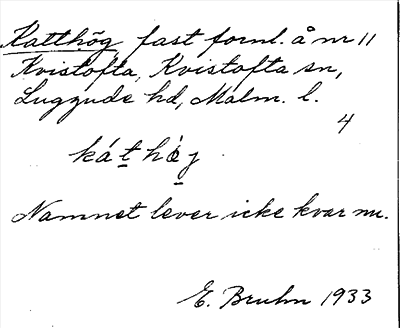 Katthög fast fornl. å nr 11
Kvistofta, Kvistofta sn,
Luggude hd, Malm. l.
4
káthöj
Namnet lever icke kvar nu.
E. Bruhn 1933